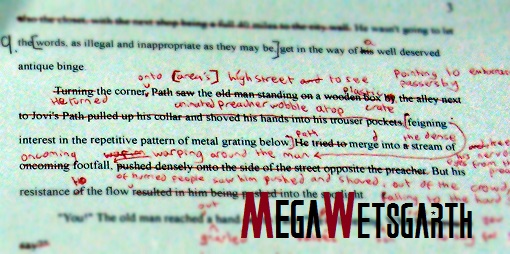 3
also the closet, with the next shop being a full 40 miles to the
9. the [words, as illegal and inappropriate as they may be,] get in the way of his a well deserved
antique binge.
onto [area's] high street and to see Pointing to
passersby
Turning the corner, Path saw the old man standing on a wooden box by the alley next
He turned animated preacher wobble atop Plastic crate
to Jovi's Path pulled up his collar and shoved his hands into his trouser pockets [feigning
interest in the repetitive pattern of metal grating below.] He tried to merge into a stream of
Path the dense
oncoming warping around the man
oncoming footfall, pushed densely onto the side of the street opposite the preacher. But his
of hurried people saw him pushed and shoved, out of the crowd,
resistance of the flow resulted in him being pushed into the spotlight
to Falling to the hard
"You!" The old man reached a hand
out
gnarled
say
MEGAWETSGARTH